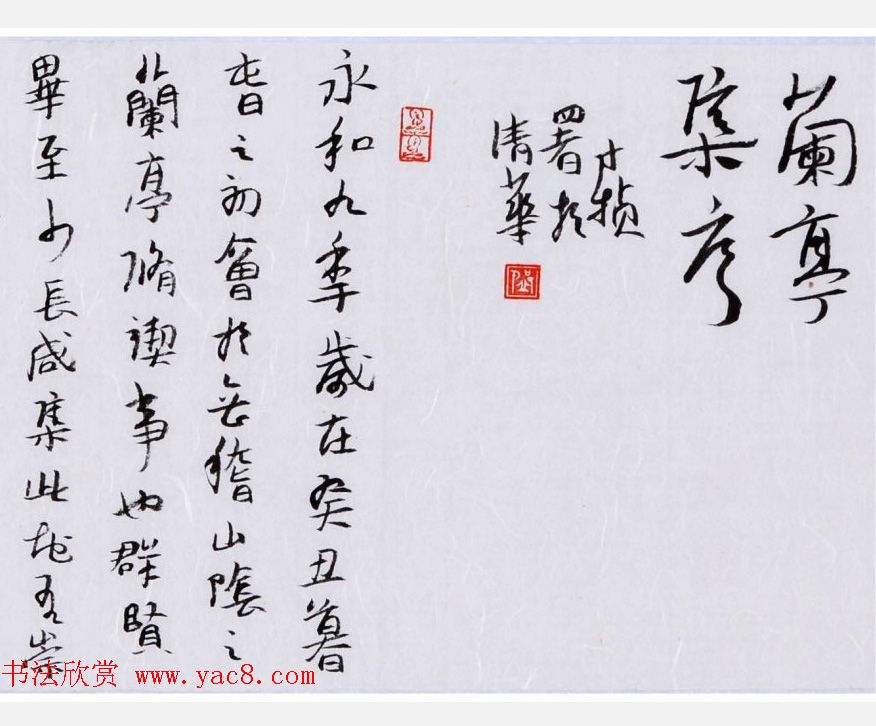 蘭亭
集序
才楨
署於
清華
永和九秊歲在癸丑暮
旾之初會於會稽山陰之
蘭亭脩禊事也群賢
畢至少長咸集此地有崇
书法欣赏 www.yac8.com